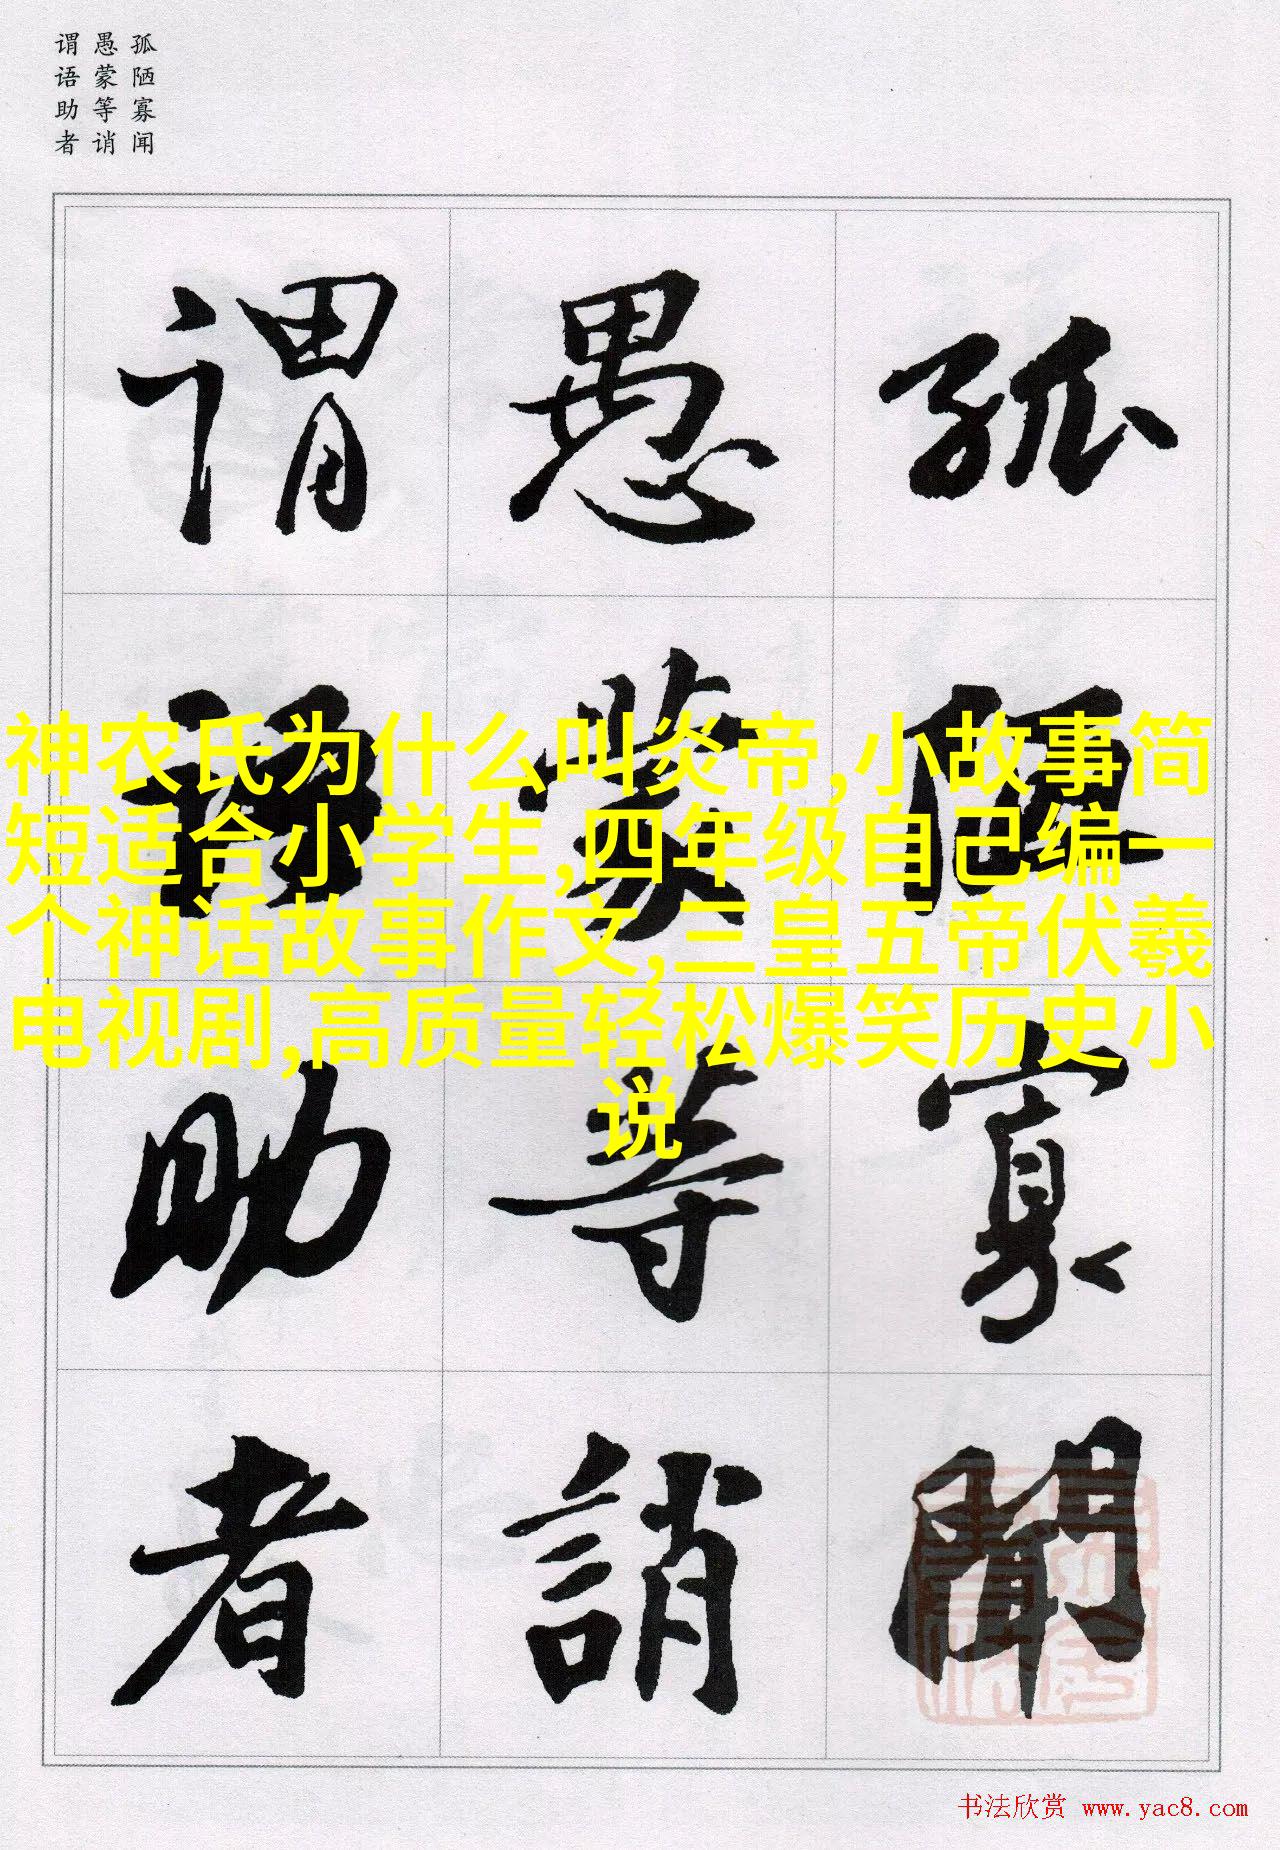 孤陋寡闻
愚蒙等诮
谓语助者
孤陋寡聞
愚蒙等誚
谓语助者
神农氏为什么叫炎帝,小故事简
短适合小学生,四年级自己编一
个神话故事作文,三皇五帝伏羲
电视剧,高质量轻松爆笑历史小
说
书法欣赏 www.yac8.com